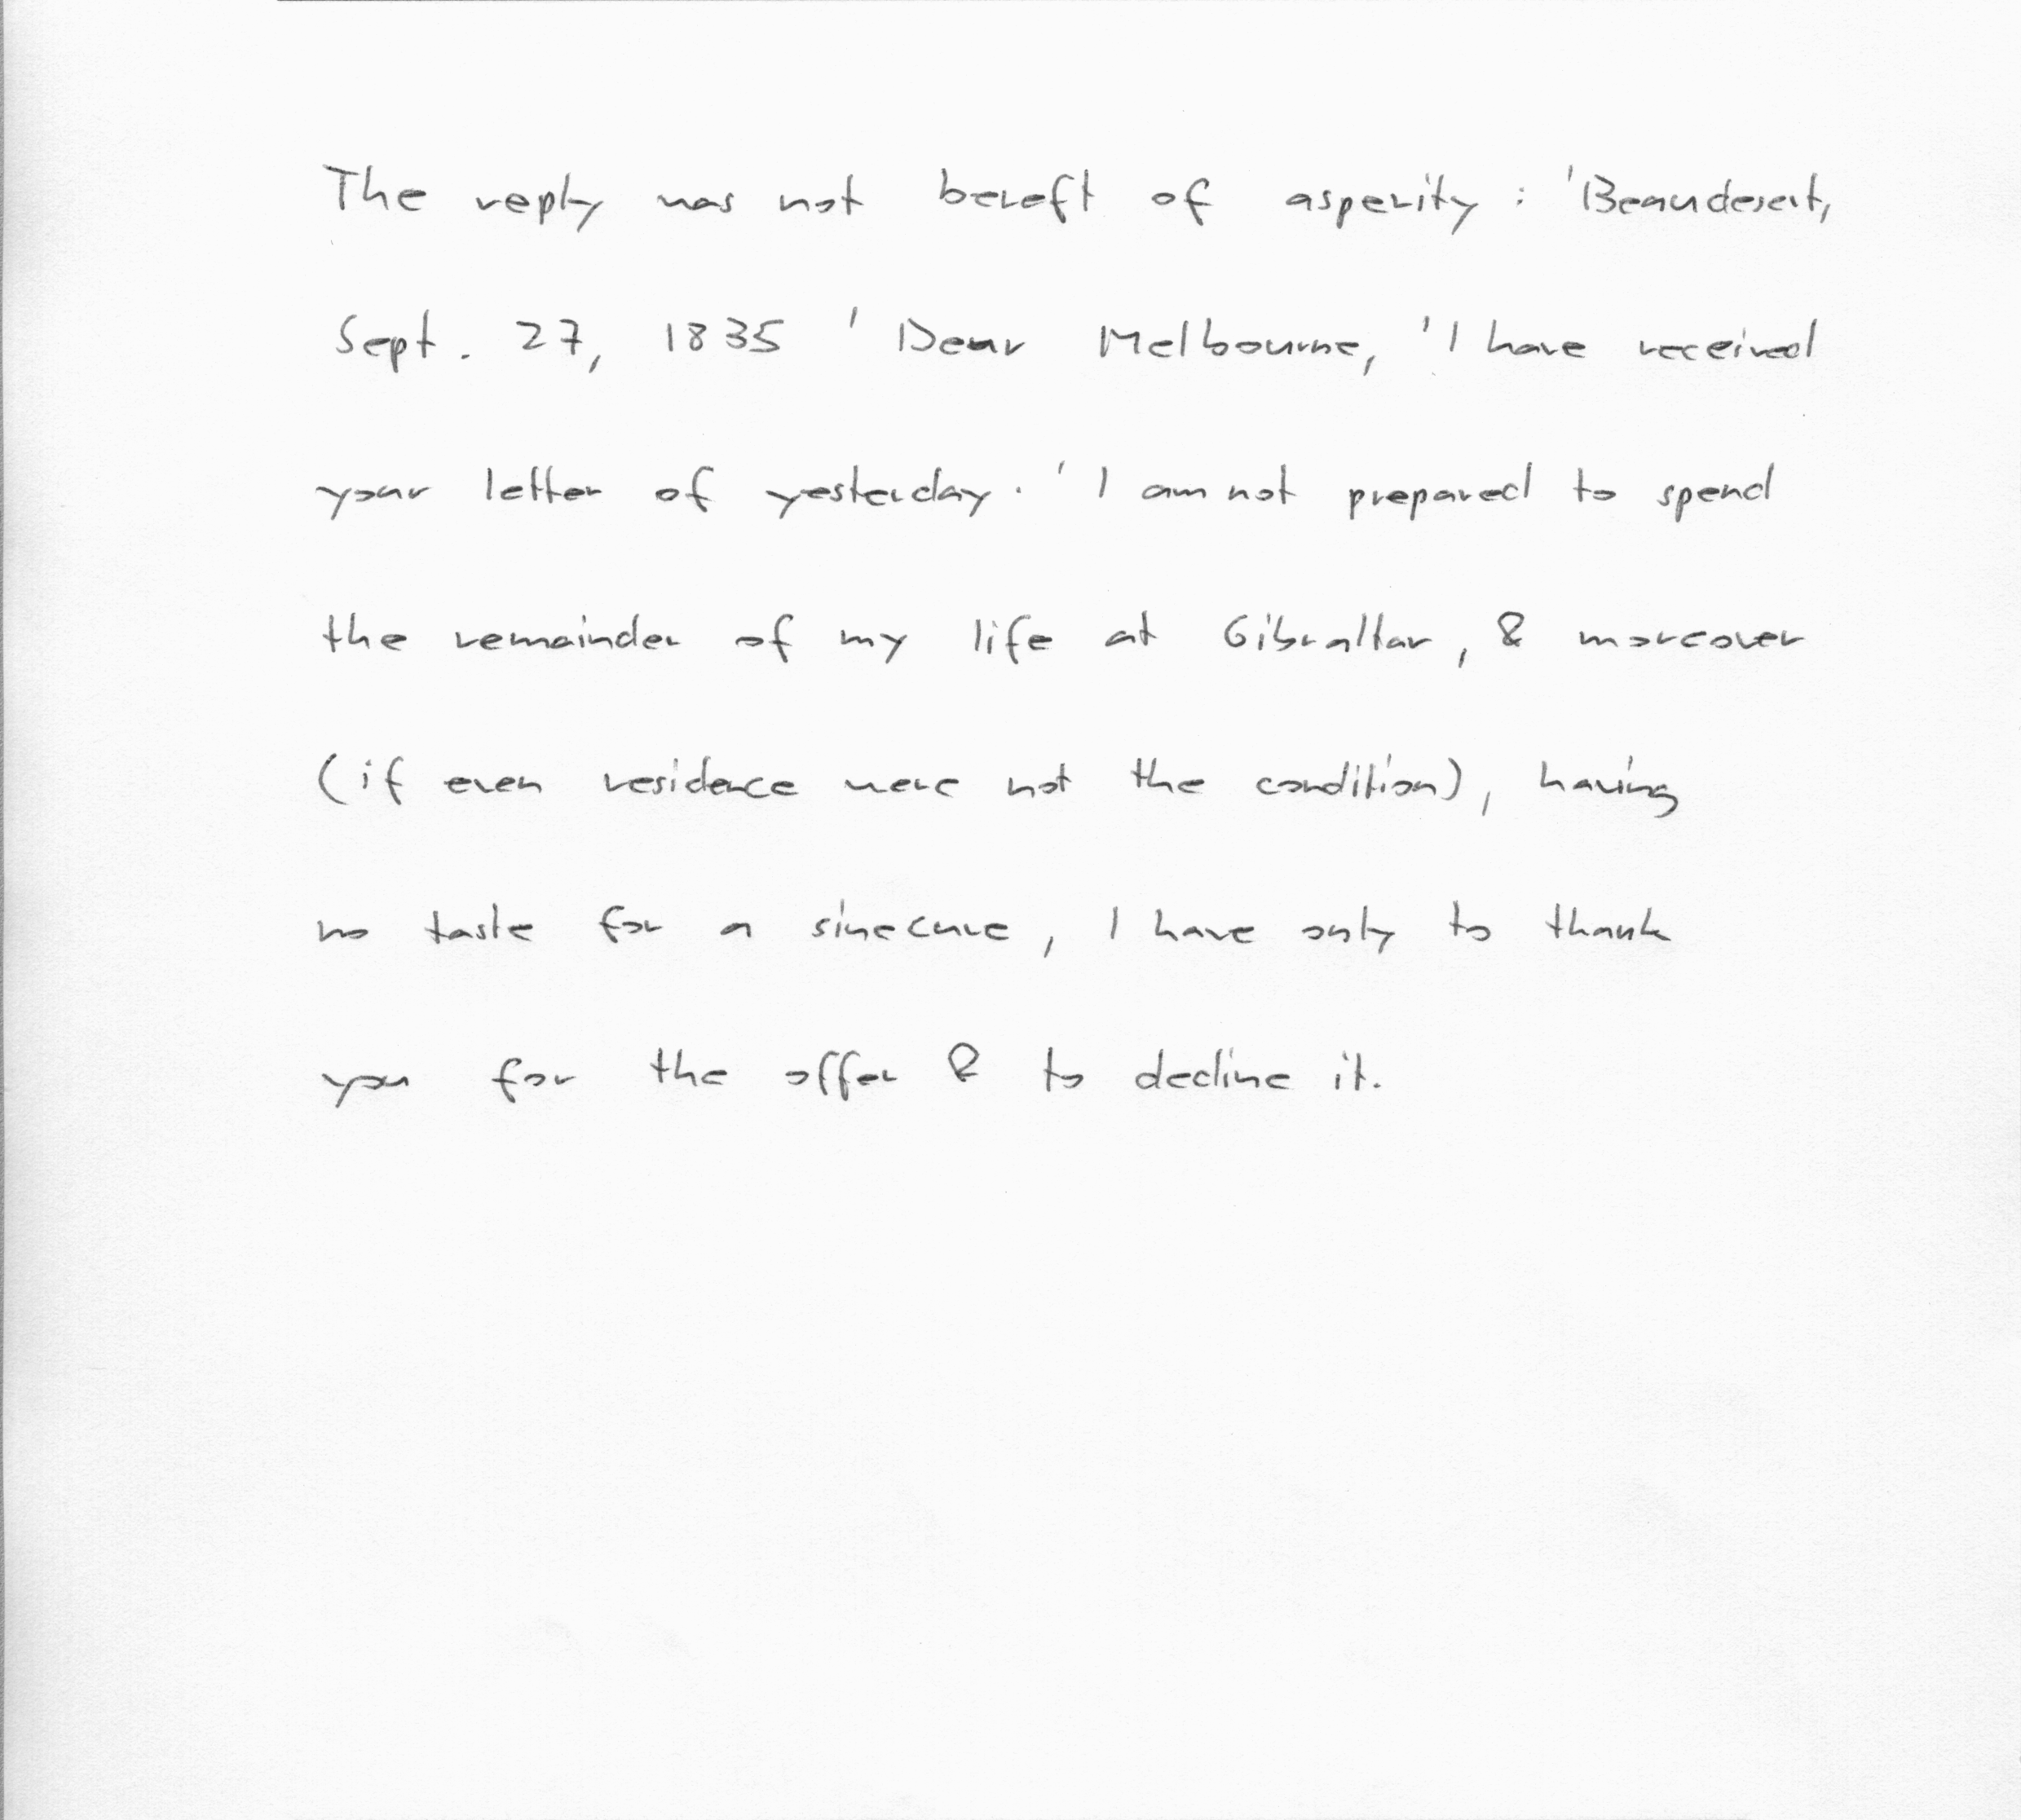 The reply was not bereft of asperity : 'Beaudesert,
Sept. 27, 1835 ' Dear Melbourne, 'I have received
your letter of yesterday. ' I am not prepared to spend
the remainder of my life at Gibraltar, & moreover
(if even residence were not the condition), having
no taste for a sinecure, I have only to thank
you for the offer & to decline it.